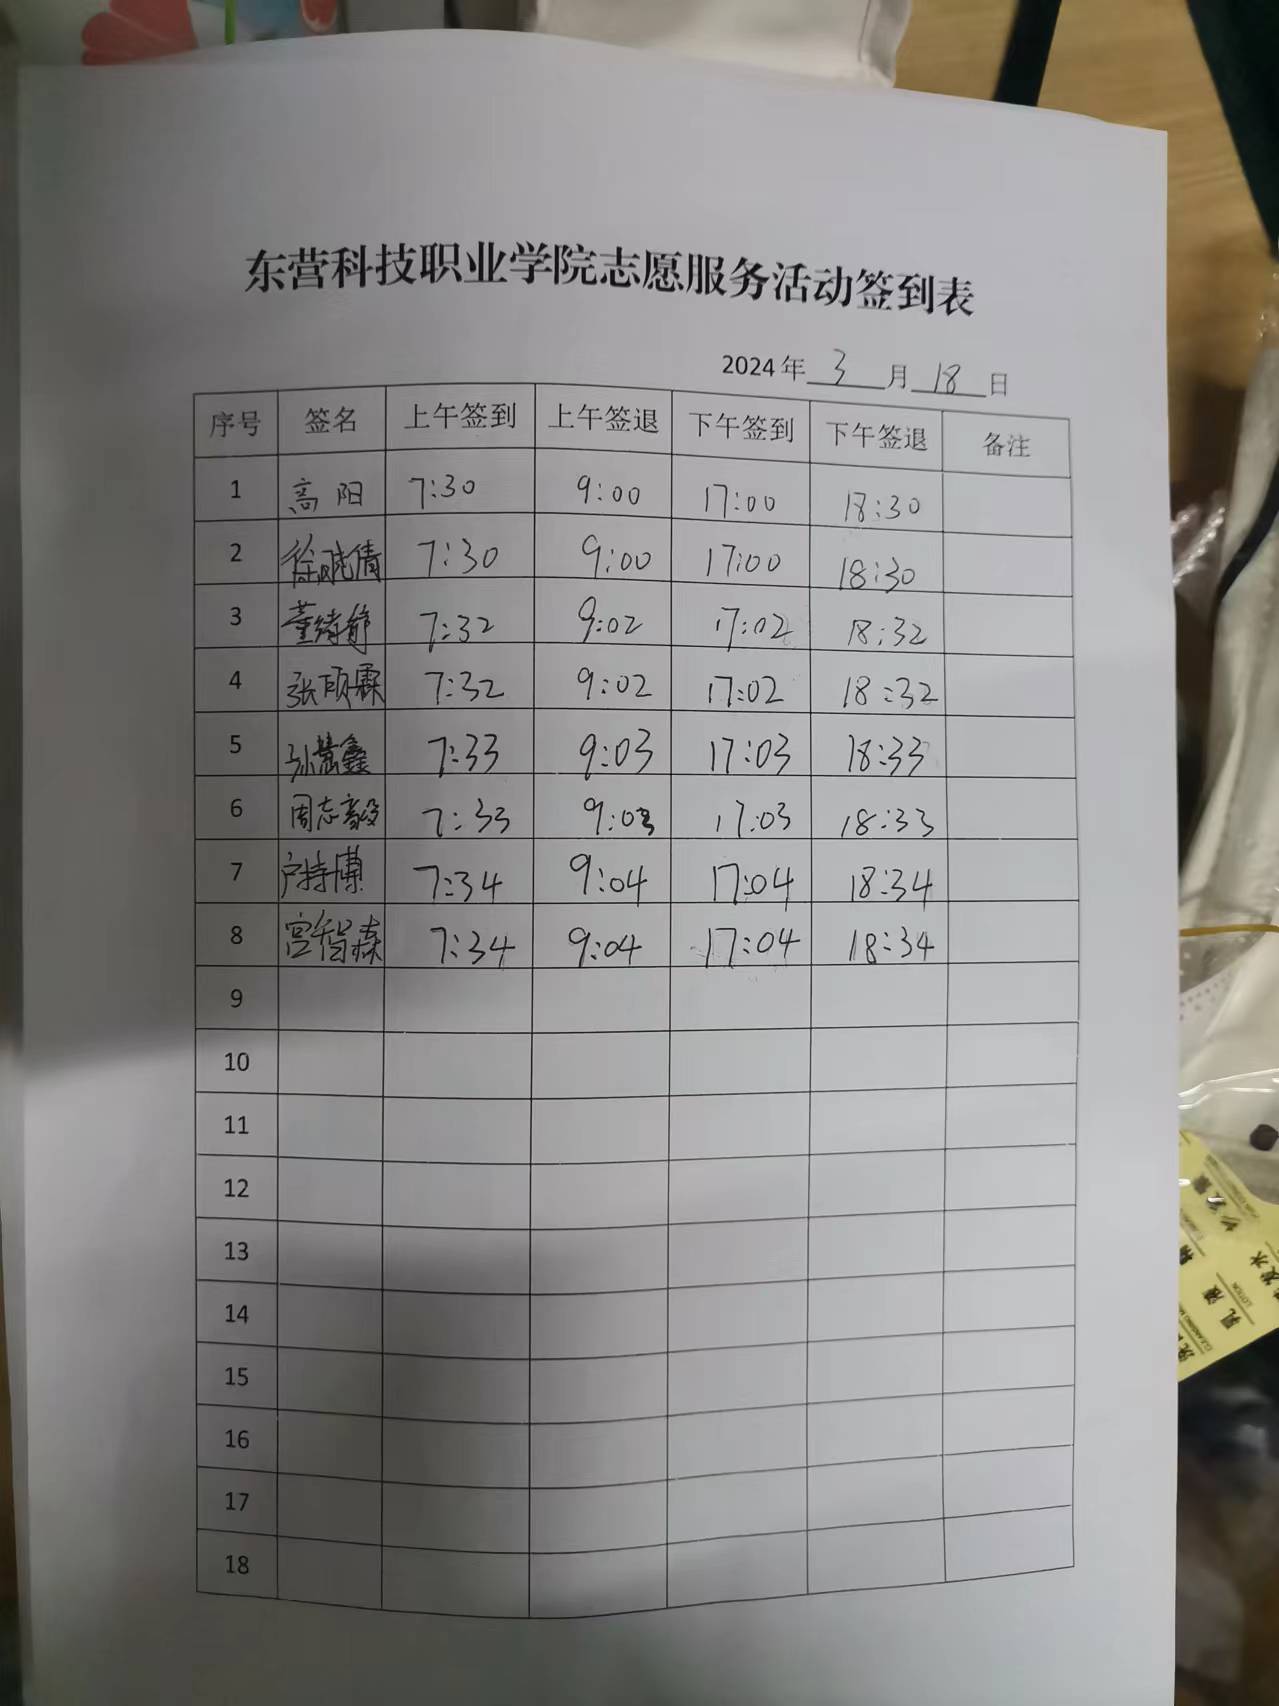 东营科技职业学院志愿服务活动签到表
2024年 3 月 18 日
序号 签名 上午签到 上午签退 下午签到 下午签退 备注
1 高阳 7:30 9:00 17:00 18:30
2 徐晓倩 7:30 9:00 17:00 18:30
3 董绮静 7:32 9:02 17:02 18:32
4 张硕霖 7:32 9:02 17:02 18:32
5 孙慧鑫 7:33 9:03 17:03 18:33
6 周志毅 7:33 9:03 17:03 18:33
7 卢持博 7:34 9:04 17:04 18:34
8 宫智森 7:34 9:04 17:04 18:34
9
10
11
12
13
14
15
16
17
18
乳液
LOTION
发水